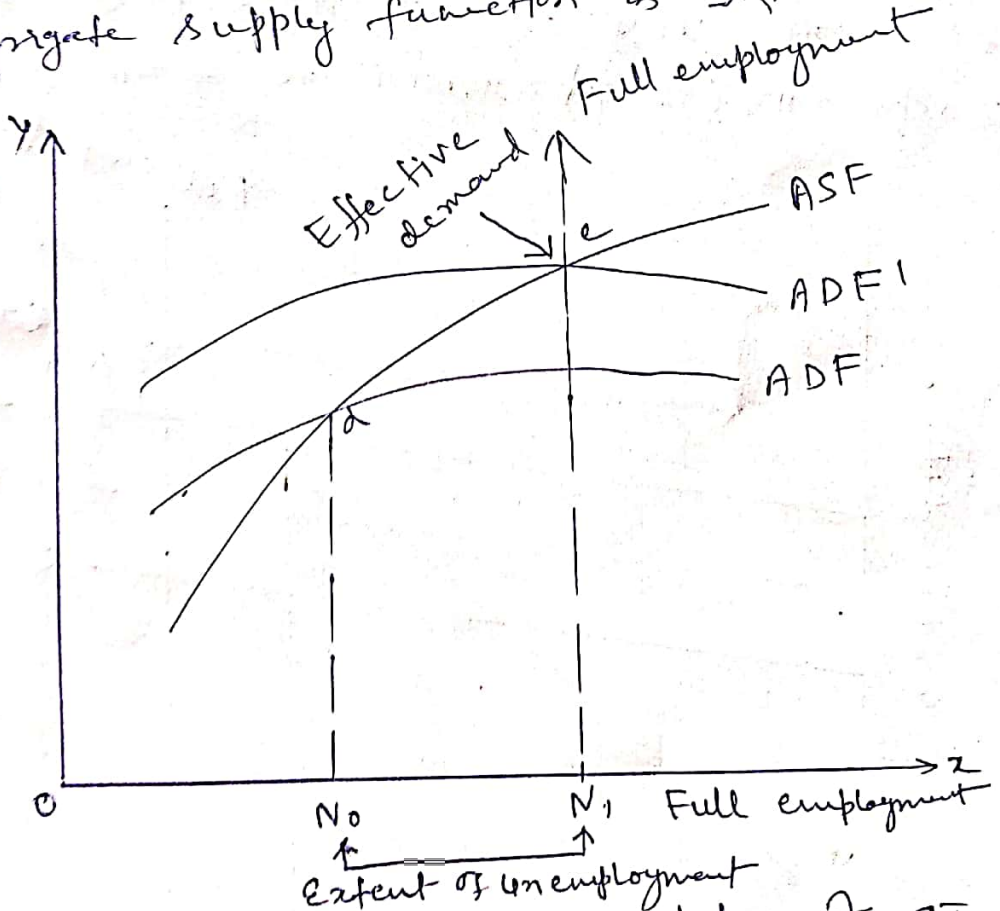 supply function
Full employment
Y
Effective
demand
e
ASF
ADF1
ADF
d
O
N0
N1 Full employment
x
Extent of unemployment